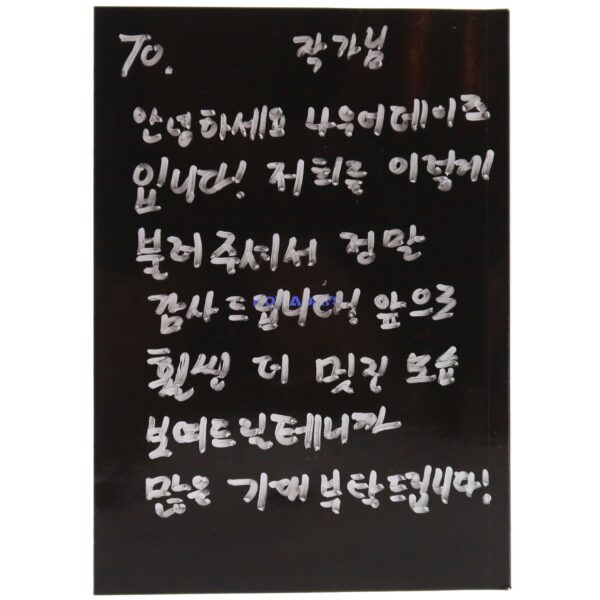 TO. 작가님
안녕하세요 나우어데이즈
입니다! 저희를 이렇게!
불러주셔서 정말
감사드립니다! 앞으로
훨씬 더 멋진 모습
보여드릴테니까
많은 기대부탁드립니다!